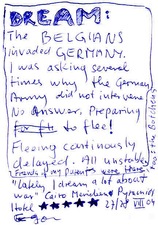 DREAM:
The BELGIANS
invaded GERMANY.
I was asking several
times why the German
Army did not intervene
No Answer, Preparing
to flee!
Fleeing continously
delayed. All unstable
Friends of my Parents were there
"Lately I dream a lot about
war" Cairo Meridien Pyramids
Hotel ★★★★★ 27/28 VIII 04
Egon